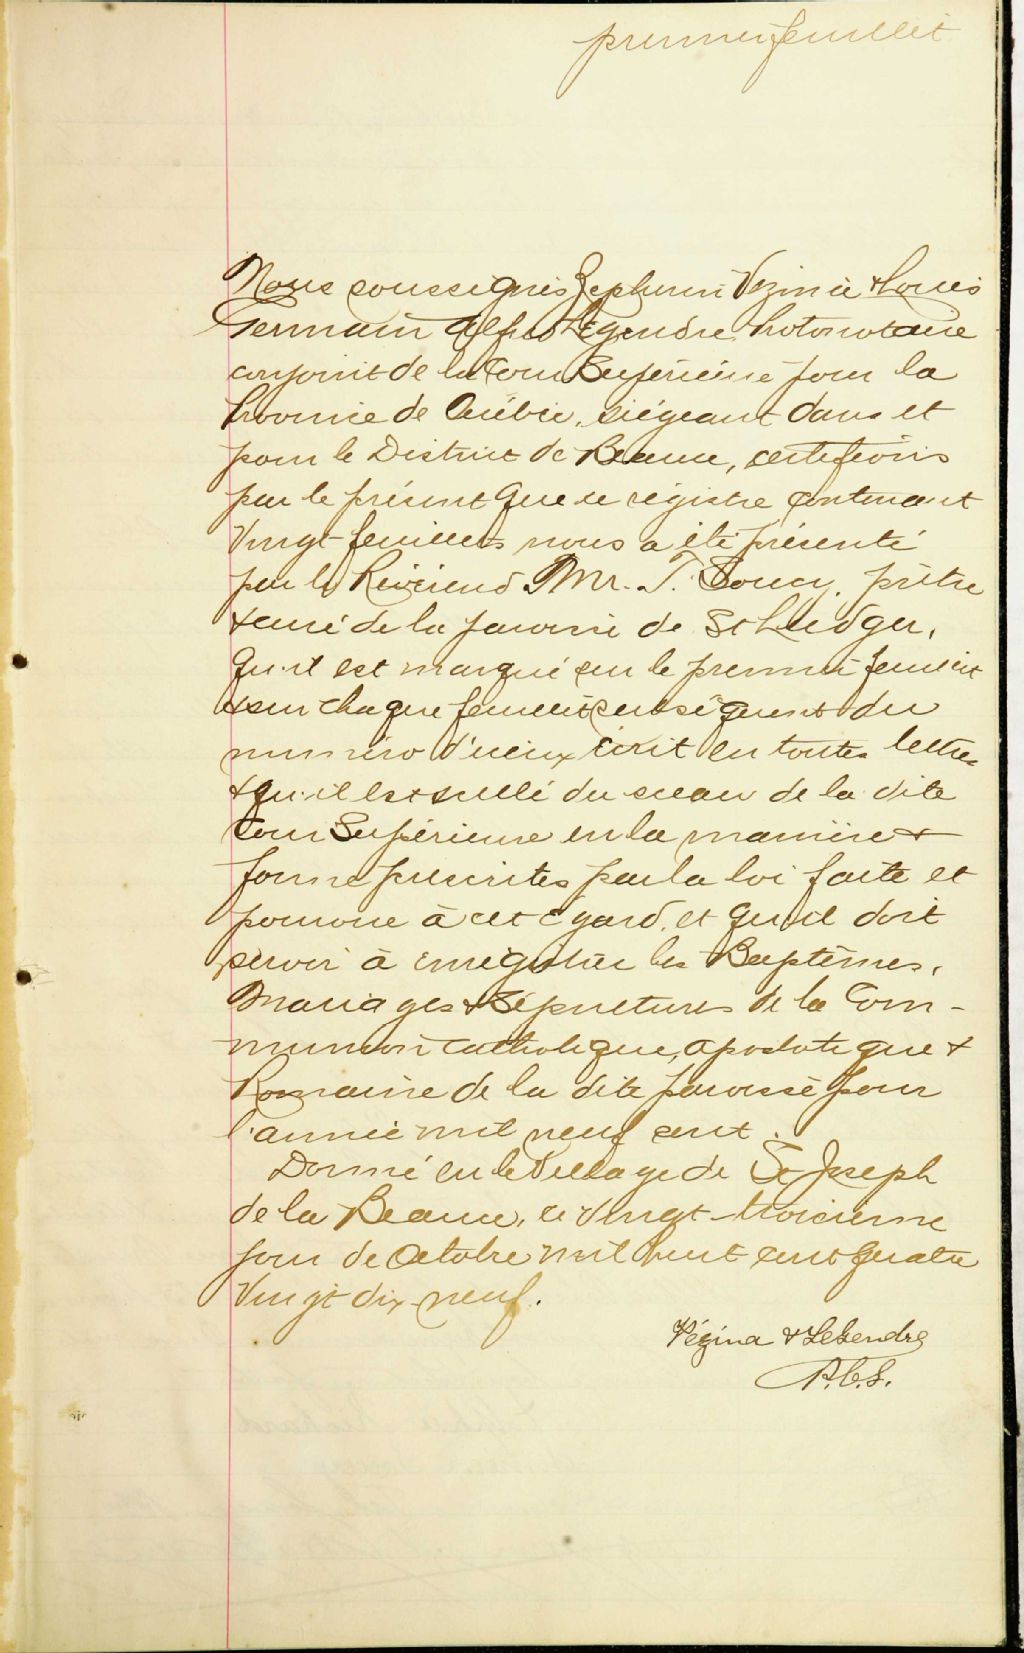 premier feuillet
Nous soussignés Zéphirin Vézina & Louis
Germain Alfred Legendre Protonotaire
conjoint de la Cour Supérieure pour la
Province de Québec, siégeant dans et
pour le District de Beauce, certifions
par le présent que ce régistre contenant
Vingt feuillets nous a été présenté
par le Révérend Mr. T. Soucy, prêtre
& curé de la paroisse de St Ludger,
qu'il est marqué sur le premier feuillet
& sur chaque feuillet subséquent du
numéro d'iceux écrit en toutes lettres
& qu'il est scellé du sceau de la dite
Cour Supérieure en la manière &
forme prescrites par la loi faite et
pourvue à cet égard, et qu'il doit
servir à enrégistrer les Baptêmes,
Mariages & Sépultures de la Com-
munion catholique, apostolique &
Romaine de la dite paroisse pour
l'année mil neuf cent.
Donné en le Village de St Joseph
de la Beauce, ce vingt-troisième
jour de Octobre mil huit cent quatre
Vingt dix neuf.
Vézina & Legendre
P.C.S.